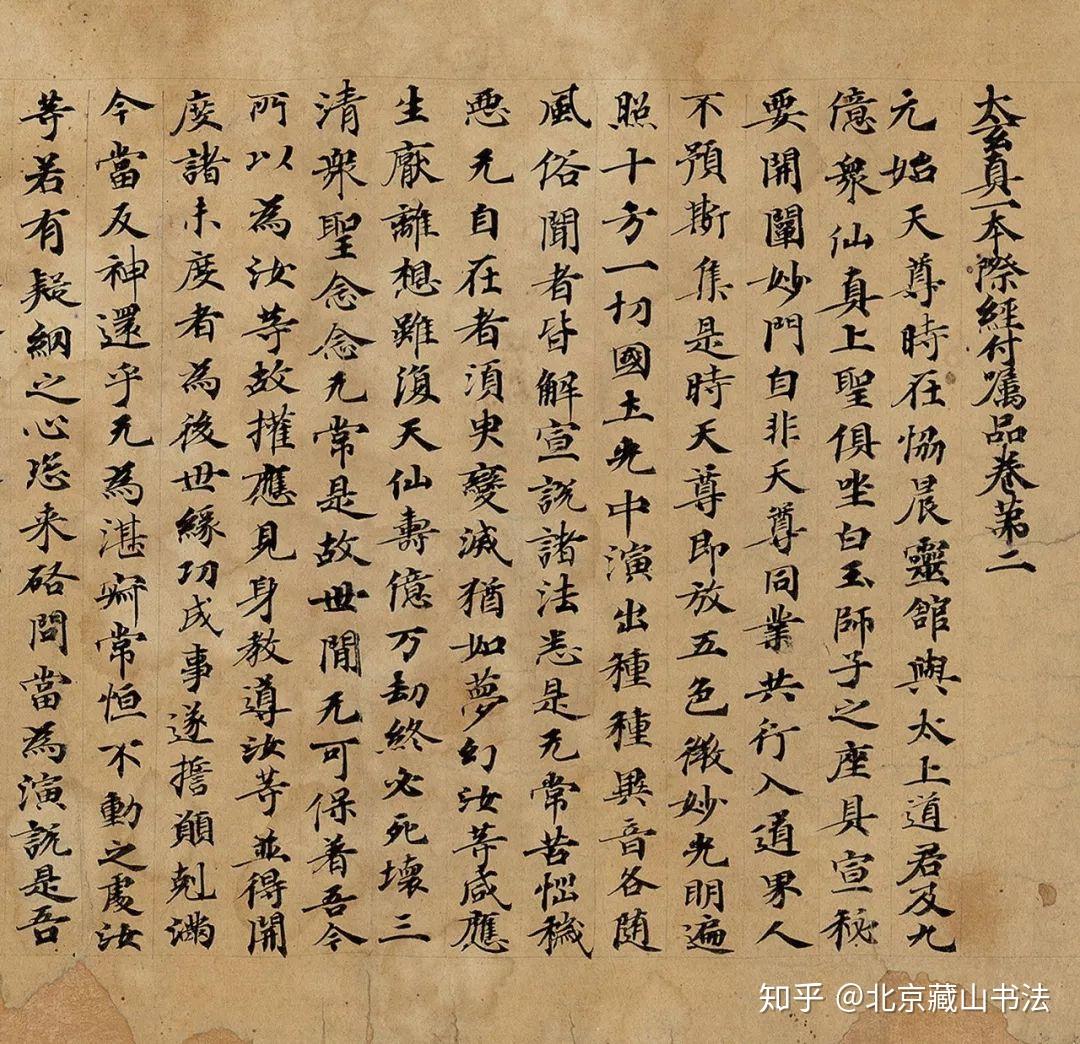 太玄真一本際經付嘱品卷第二
元始天尊時在恊晨靈館與太上道君及九
億衆仙真上聖俱坐白玉師子之座具宣秘
要開闡妙門自非天尊同業共行入道界人
不預斯集是時天尊即放五色微妙光明遍
照十方一切國土光中演出種種異音各随
風俗聞者皆解宣說諸法悉是无常苦惱穢
惡无自在者須臾變滅猶如夢幻汝等咸應
生厭離想雖復天仙壽億万劫終必死壞三
清衆聖念念无常是故世間无可保着吾今
所以為汝等故權應見身教導汝等並得開
度諸未度者為後世緣功成事遂擔願剋滿
今當反神還乎无為湛寂常恒不動之處汝
等若有疑網之心怱来咨問當為演說是吾
知乎 @北京藏山书法